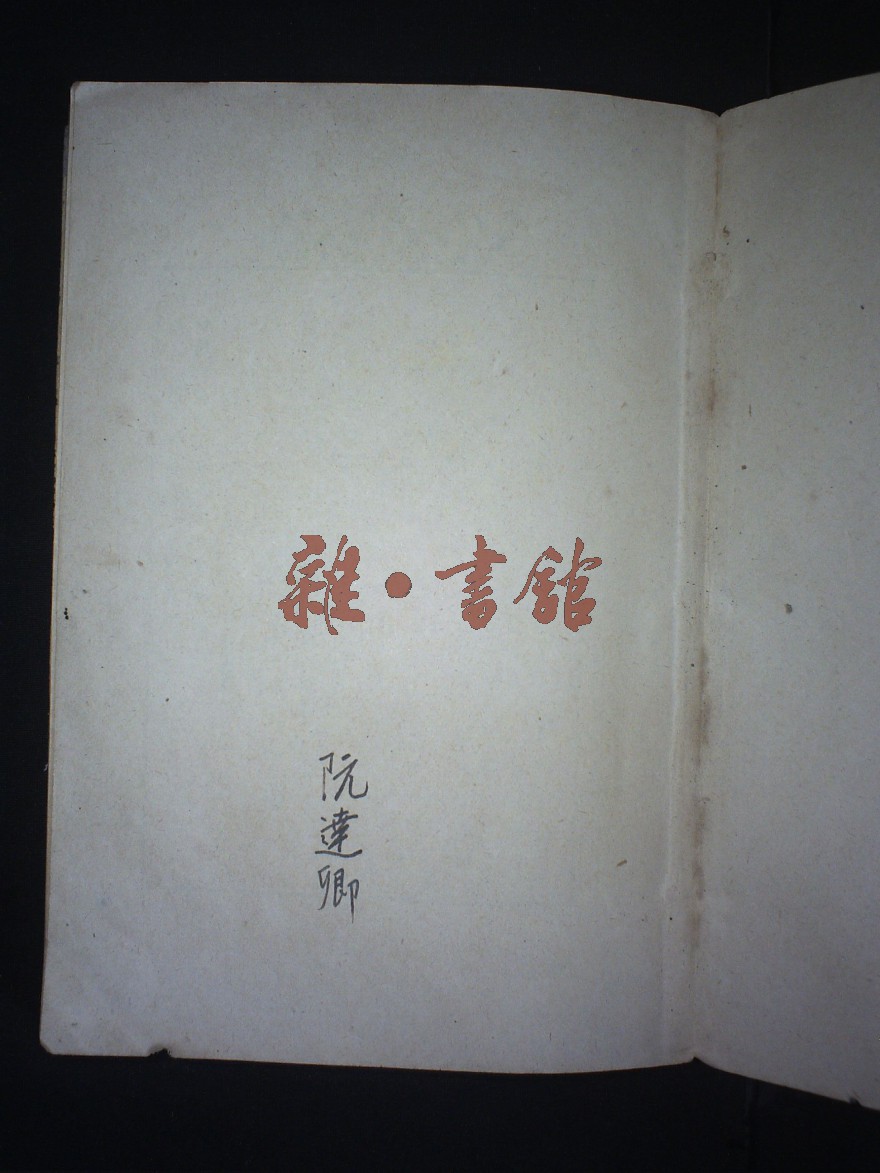 雜•書館
阮達卿